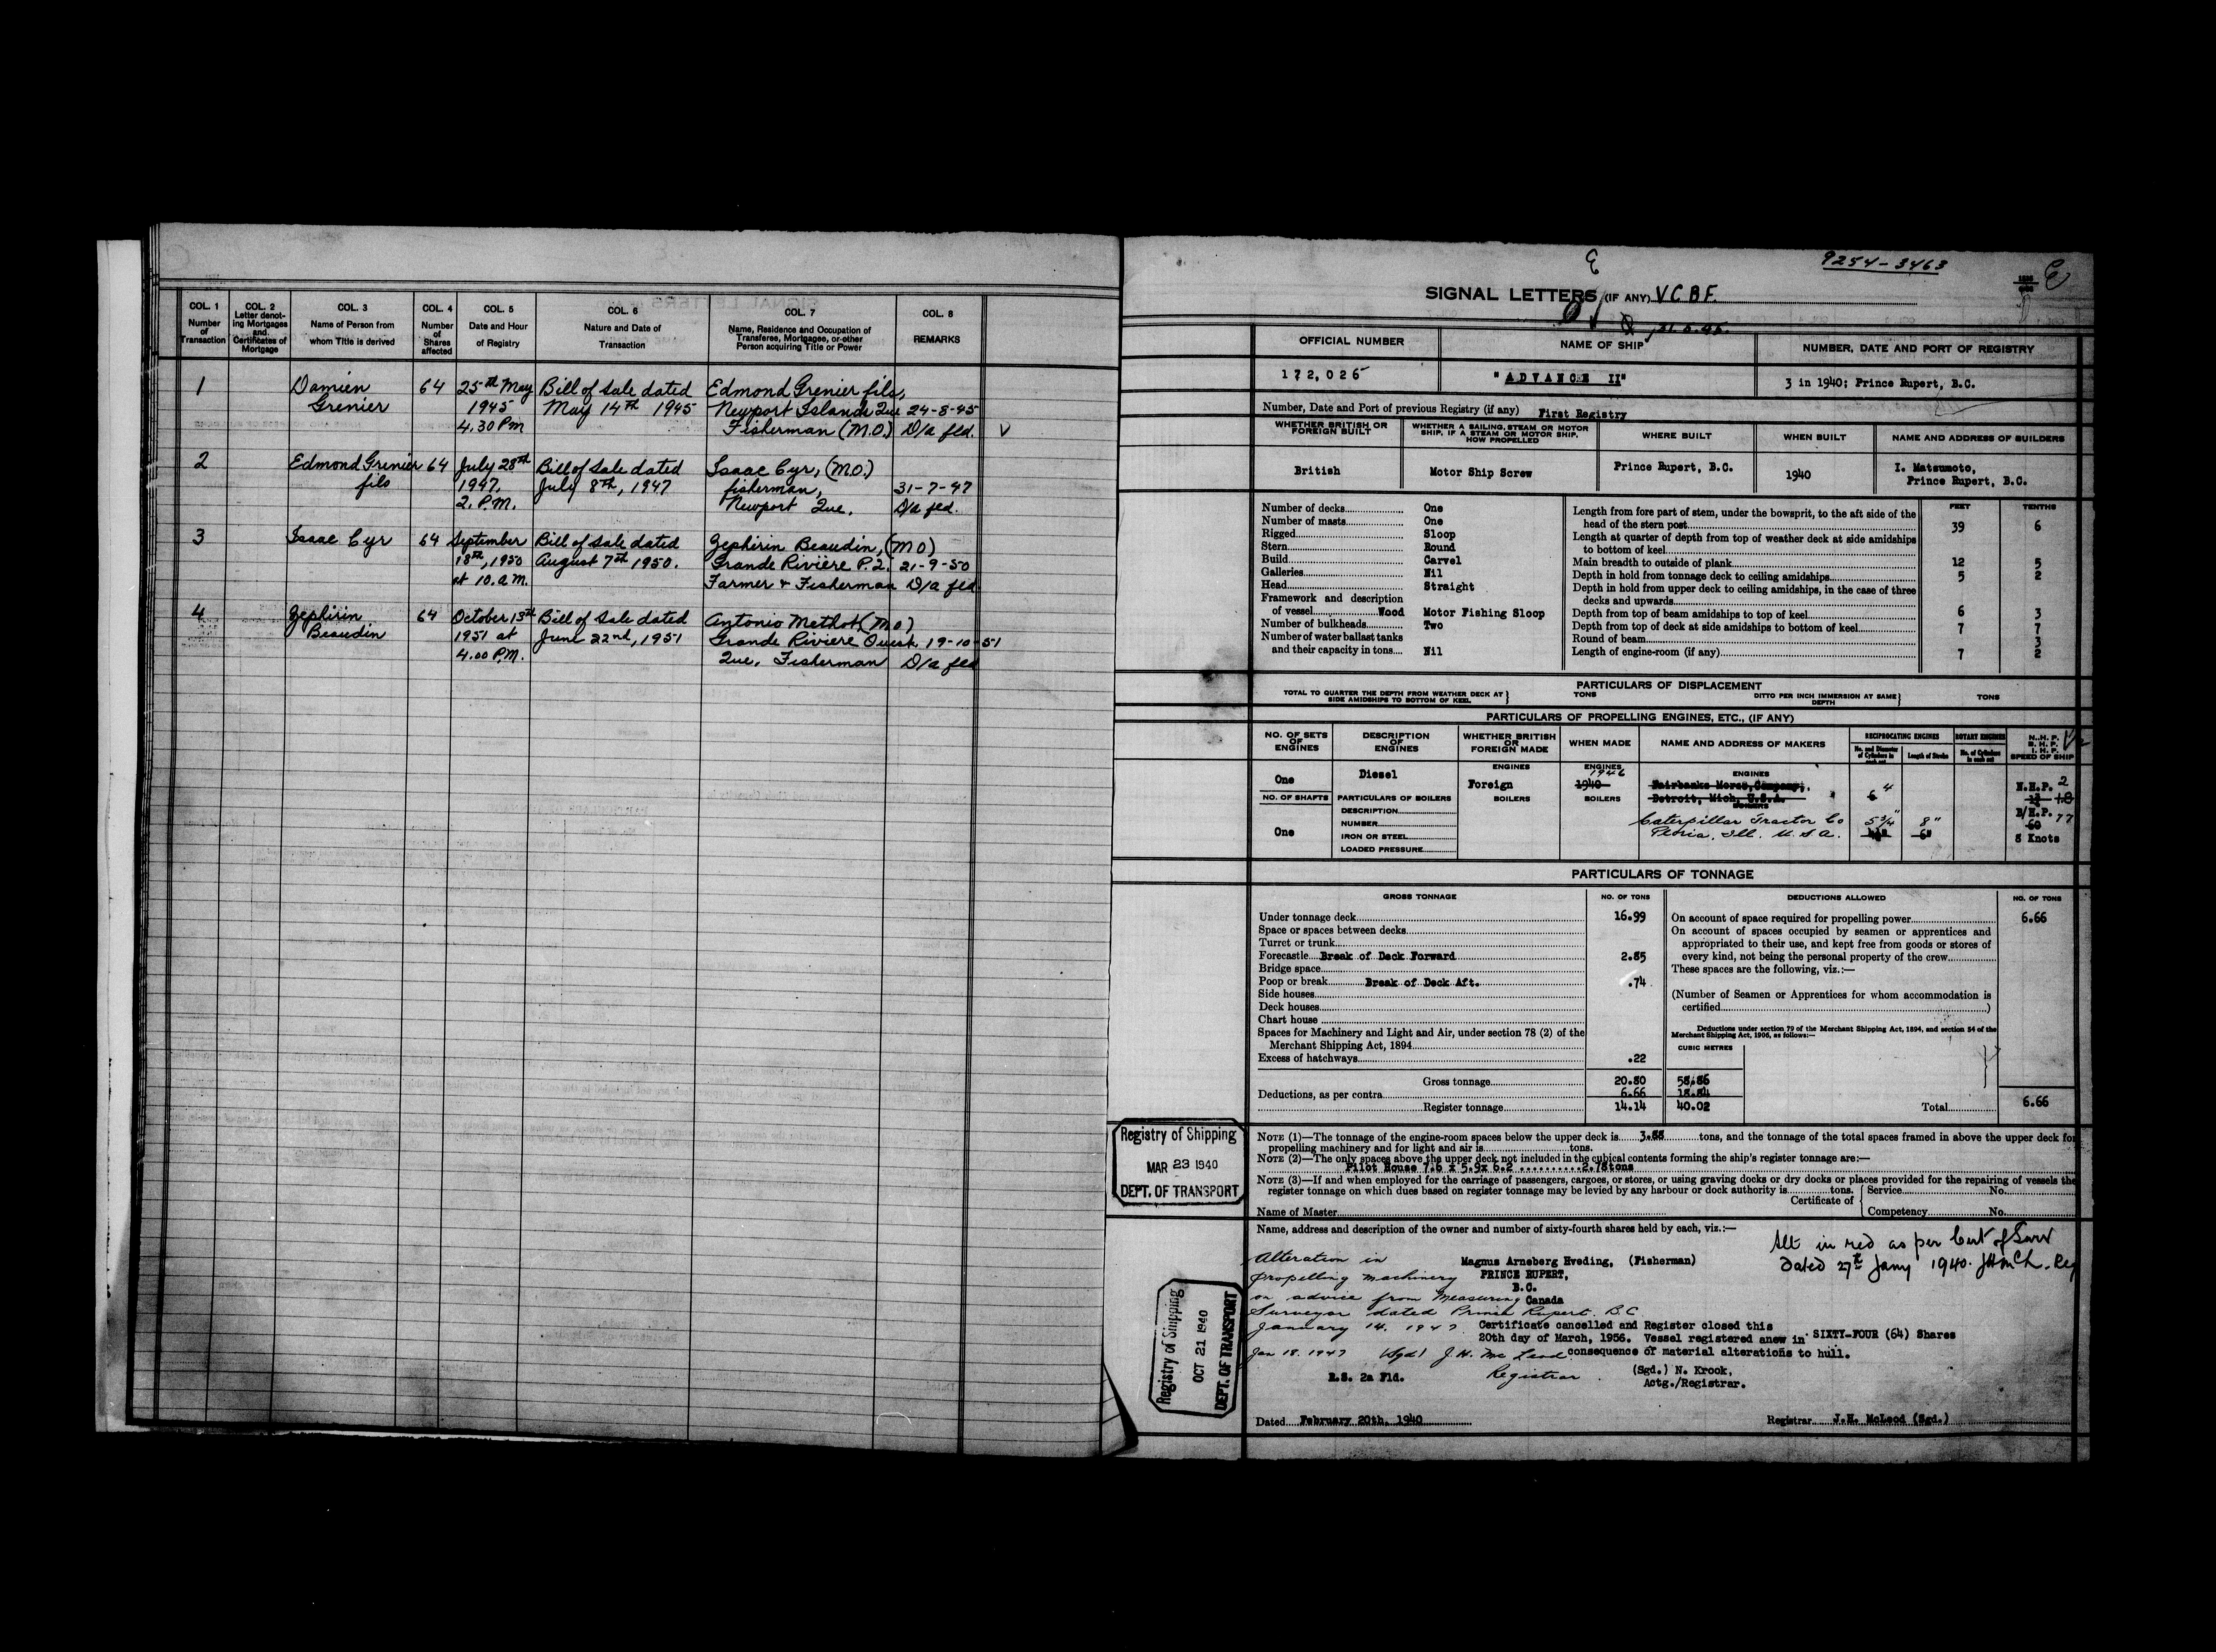 COL. 1 COL. 2 COL. 3 COL. 4 COL. 5 COL. 6 COL. 7 COL. 8
Number of Transaction
Letter denoting Mortgages and Certificates of Mortgage
Name of Person from whom Title is derived
Number of Shares affected
Date and Hour of Registry
Nature and Date of Transaction
Name, Residence and Occupation of Transferee, Mortgagee, or other Person acquiring Title or Power
REMARKS
1 Damien 64 25th May Bill of Sale dated Edmond Grenier fils,
Grenier 1945 May 14th 1945 Newport Islands Que 24-8-45
4.30 PM Fisherman (M.O.) D/a fld. V
2 Edmond Grenier 64 July 28th Bill of Sale dated Isaac Cyr, (M.O.)
fils 1947, July 8th, 1947 fisherman, 31-7-47
2. P.M. Newport Que. D/a fld.
3 Isaac Cyr 64 September Bill of Sale dated Zephirin Beaudin, (MO)
18th, 1950 August 7th 1950. Grande Rivière P.Q. 21-9-50
at 10. a.m. Farmer & Fisherman D/a fld
4 Zephirin 64 October 13th Bill of Sale dated Antonio Methot (M.O)
Beaudin 1951 at June 22nd, 1951 Grande Riviere Ouest 19-10-51
4.00 P.M. Que. Fisherman D/a fld
9254-3463
SIGNAL LETTERS (IF ANY) V C B F.
OFFICIAL NUMBER NAME OF SHIP NUMBER, DATE AND PORT OF REGISTRY
172,026 "ADVANCE II" 3 in 1940; Prince Rupert, B.C.
Number, Date and Port of previous Registry (if any) First Registry
WHETHER BRITISH OR FOREIGN BUILT
WHETHER A SAILING, STEAM OR MOTOR SHIP, IF A STEAM OR MOTOR SHIP, HOW PROPELLED
WHERE BUILT WHEN BUILT NAME AND ADDRESS OF BUILDERS
British Motor Ship Screw Prince Rupert, B.C. 1940 I. Matsumoto,
Prince Rupert, B.C.
FEET TENTHS
Number of decks One
Number of masts One
Rigged Sloop
Stern Round
Build Carvel
Galleries Nil
Head Straight
Framework and description
of vessel Wood Motor Fishing Sloop
Number of bulkheads Two
Number of water ballast tanks
and their capacity in tons Nil
Length from fore part of stem, under the bowsprit, to the aft side of the
head of the stern post 39 6
Length at quarter of depth from top of weather deck at side amidships
to bottom of keel
Main breadth to outside of plank 12 5
Depth in hold from tonnage deck to ceiling amidships 5 2
Depth in hold from upper deck to ceiling amidships, in the case of three
decks and upwards
Depth from top of beam amidships to top of keel 6 3
Depth from top of deck at side amidships to bottom of keel 7 7
Round of beam 3
Length of engine-room (if any) 7 2
PARTICULARS OF DISPLACEMENT
TOTAL TO QUARTER THE DEPTH FROM WEATHER DECK AT SIDE AMIDSHIPS TO BOTTOM OF KEEL } TONS
DITTO PER INCH IMMERSION AT SAME DEPTH } TONS
PARTICULARS OF PROPELLING ENGINES, ETC., (IF ANY)
NO. OF SETS OF ENGINES
DESCRIPTION OF ENGINES
WHETHER BRITISH OR FOREIGN MADE
WHEN MADE
NAME AND ADDRESS OF MAKERS
RECIPROCATING ENGINES
No. and Diameter of Cylinders in each set
Length of Stroke
ROTARY ENGINES
No. of Cylinders in each set
N.H.P.
B.H.P.
I.H.P.
SPEED OF SHIP
ENGINES ENGINES ENGINES
1946
One Diesel Foreign 1940 Fairbanks Morse, Company, 4 N.H.P. 2
NO. OF SHAFTS PARTICULARS OF BOILERS BOILERS BOILERS Detroit, Mich, U.S.A. 6
BOILERS
DESCRIPTION B/H.P. 77
NUMBER Caterpillar Tractor Co 5 3/4" 8" 60
One IRON OR STEEL Peoria, Ill. U.S.A. 6" 8 Knots
LOADED PRESSURE
PARTICULARS OF TONNAGE
GROSS TONNAGE NO. OF TONS DEDUCTIONS ALLOWED NO. OF TONS
Under tonnage deck 16.99
Space or spaces between decks
Turret or trunk
Forecastle Break of Deck Forward 2.85
Bridge space
Poop or break Break of Deck Aft. .74
Side houses
Deck houses
Chart house
Spaces for Machinery and Light and Air, under section 78 (2) of the
Merchant Shipping Act, 1894
Excess of hatchways .22
Gross tonnage 20.80 58.86
Deductions, as per contra 6.66 18.84
Register tonnage 14.14 40.02
On account of space required for propelling power 6.66
On account of spaces occupied by seamen or apprentices and
appropriated to their use, and kept free from goods or stores of
every kind, not being the personal property of the crew
These spaces are the following, viz.:—
(Number of Seamen or Apprentices for whom accommodation is
certified)
Deductions under section 79 of the Merchant Shipping Act, 1894, and section 54 of the
Merchant Shipping Act, 1906, as follows:—
CUBIC METRES
Total 6.66
NOTE (1)—The tonnage of the engine-room spaces below the upper deck is 3.88 tons, and the tonnage of the total spaces framed in above the upper deck for
propelling machinery and for light and air is tons.
NOTE (2)—The only spaces above the upper deck not included in the cubical contents forming the ship's register tonnage are:—
Pilot House 7.6 x 5.9x 6.2 ..........2.78tons
NOTE (3)—If and when employed for the carriage of passengers, cargoes, or stores, or using graving docks or dry docks or places provided for the repairing of vessels the
register tonnage on which dues based on register tonnage may be levied by any harbour or dock authority is tons.
Certificate of { Service No.
Name of Master Competency No.
Registry of Shipping
MAR 23 1940
DEPT. OF TRANSPORT
Registry of Shipping
OCT 21 1940
DEPT. OF TRANSPORT
Name, address and description of the owner and number of sixty-fourth shares held by each, viz.:—
Magnus Arneberg Hveding, (Fisherman)
PRINCE RUPERT,
B.C.
Canada
SIXTY-FOUR (64) Shares
Alt in red as per Cert of Surv
dated 27th Jany 1940.
Alteration in
propelling machinery
on advice from Measuring
Surveyor dated Prince Rupert. B.C
January 14. 1947
Jan 18. 1947 (Sgd) J.H. Mc Leod
Registrar
Certificate cancelled and Register closed this
20th day of March, 1956. Vessel registered anew in
consequence of material alterations to hull.
(Sgd.) N. Krook,
Actg./Registrar.
R.S. 2a Fld.
Dated February 20th, 1940 Registrar J.H. McLeod (Sgd.)